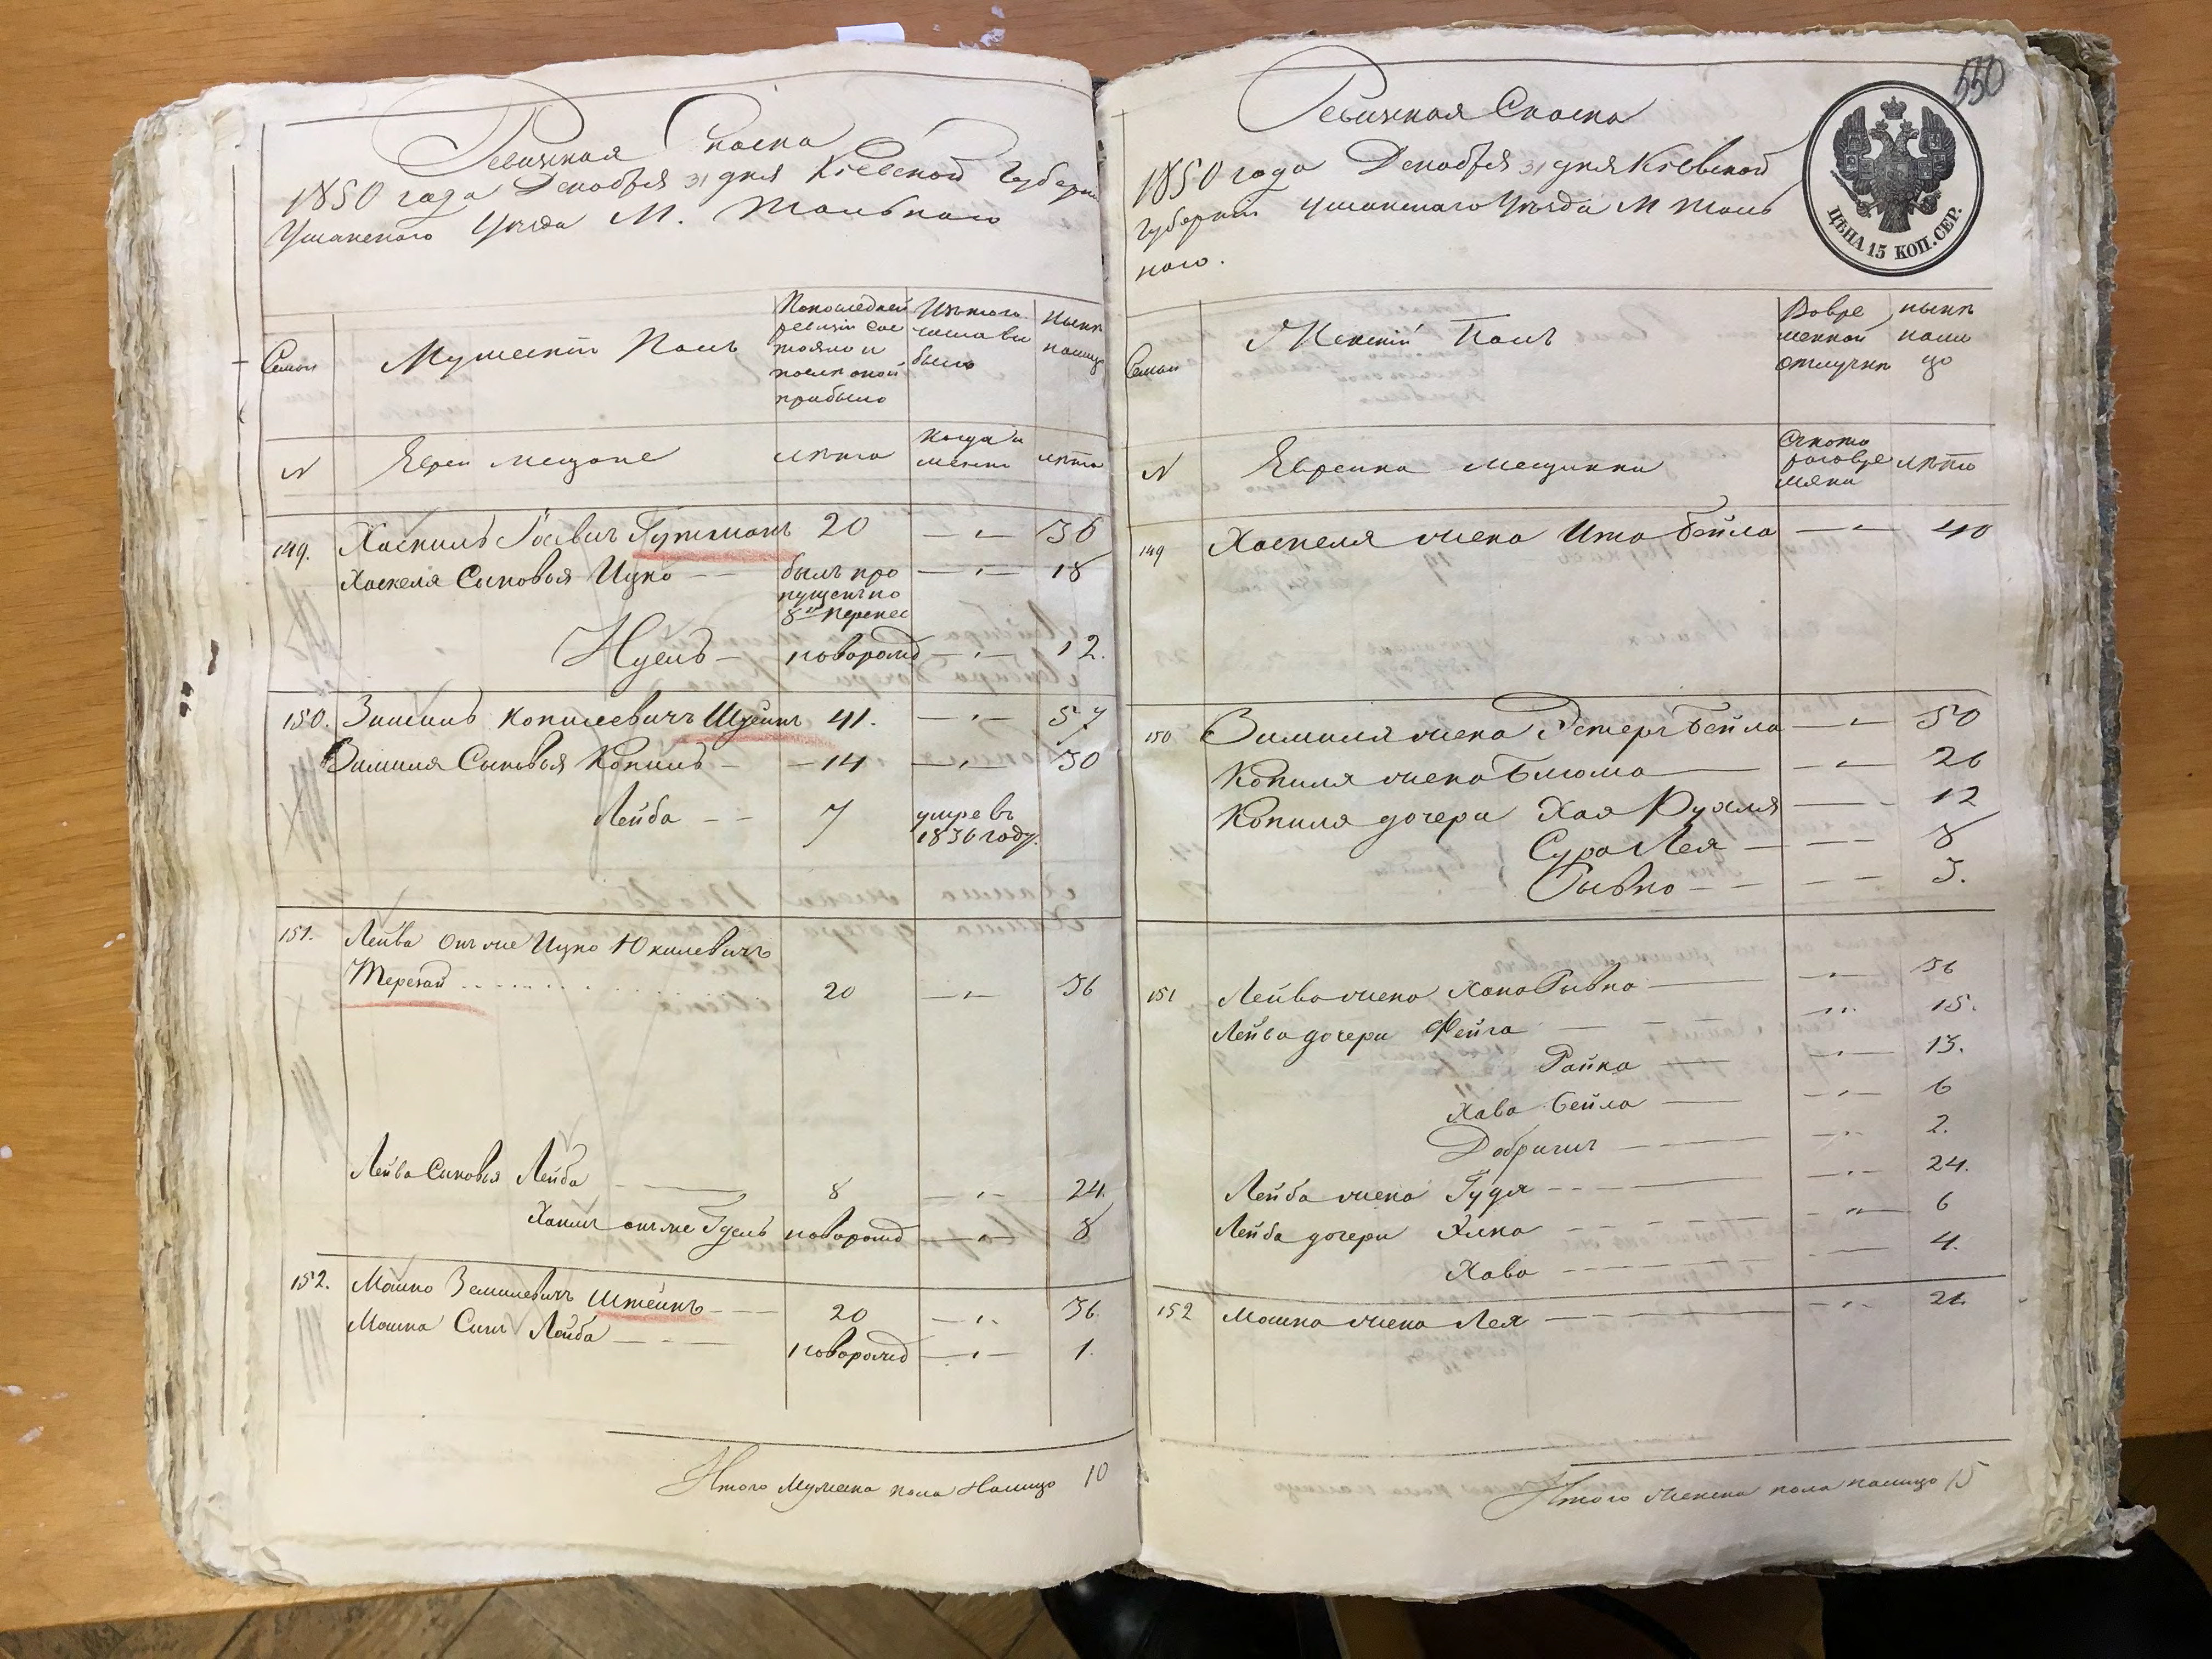 Ревижская Скаска
1850 года Декабря 31 дня Кіевской Губерніи
Уманского Уѣзда М. Тального
Семьи
Мужескій Полъ
Попоследней
ревизіи сос
тояло и
послѣ оной
прибыло
Изтого
числа вы
было
Нынѣ
налицо
N
Евреи мещане
лѣта
Когда и
лѣта
149. Хаскиль Іосевич Гутманъ 20 — 36
Хаскеля Сыновья Ицко — былъ про — 18
пущенъ по
8й перепес
Нусль — новорожд — 12.
150. Зимель Копилевичъ Штейнъ 41. — 57
Зимиля Сыновья Копиль — 14 — 30
Лейба — 7 умре въ
1836 году.
151. Лейва онъ же Ицко Юкилевичъ
20 — 36
Лейва Сыновья Лейба — 8 — 24.
Хаимъ онъ же Гдель новорожд — 8
152. Мошко Земилевичъ Штейнъ — 20 — 36
Мошка Сынъ Лейба — новорожд — 1.
Итого Мужеска пола Налицо 10
550
Ревижская Скаска
1850 года Декабря 31 дня Кіевской
Губерніи Уманскаго Уѣзда М Таль
ного.
ЦѢНА 15 КОП. СЕР.
Семьи
Женскій Полъ
Вовре
менной
отлучкѣ
нынѣ
нали
цо
N
Еврейки мещанки
Ското
раговре
мяни
лѣта
149 Хаскеля жена Ита Бейла — 40
150 Зимиля жена Эстеръ Бейла — 50
Копиля жена Блюма — 26
Копиля дочери Хая Рухля — 12
Сура Лея — 8
Рывка — 3.
151 Лейва жена Хана Рывка — 36
Лейва дочери Фейга — 15.
Райка — 13.
Хава Бейла — 6
Добришъ — 2.
Лейба жена Гудя — 24.
Лейба дочери Элка — 6
Хава — 4.
152 Мошка жена Лея — 21.
Итого Женска пола налицо 15